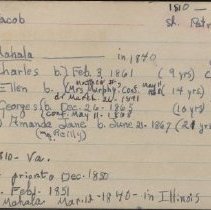 1810 -
Jacob
St. Patr
Mahala in 1840
Charles b.) Feb. 3, 1861 (9 yrs)
Ellen b. (Mrs. Murphy May 11 (14 yrs)
d. March 1941
George b. Dec. 26, 1865 (10 yrs)
conf. May 11 - 1878
Amanda Jane b. June 23, 1867 (21 yrs)
1810 - Va.
prior to Dec. 1850
Feb. 1851
Mahala Mar. 12 - 1840 - in Illinois